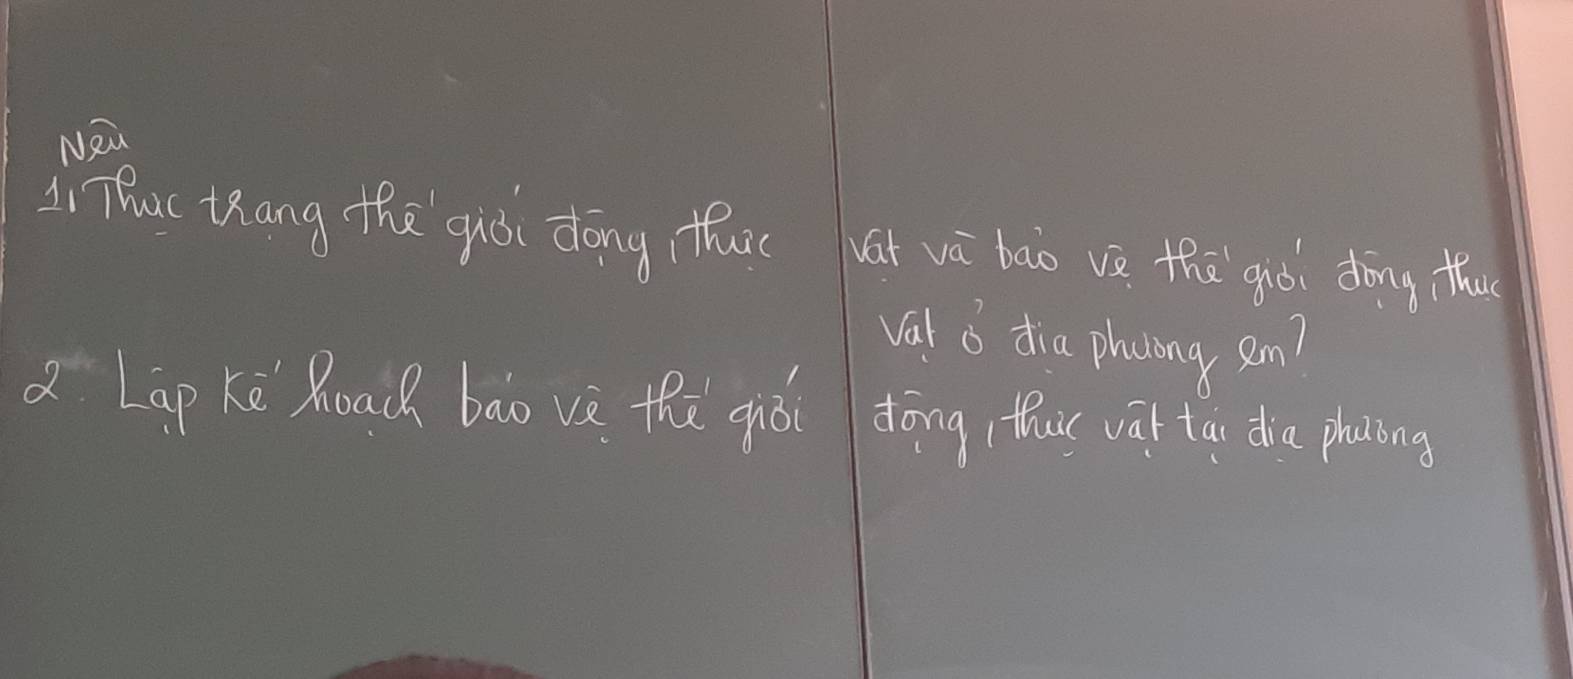 Nêu
1, Thực trạng thế giới động, thực vật và bảo vệ thế giới động, thực
vật ở địa phương em?
2. Lập kế hoạch bảo vệ thế giới động, thực vật tại địa phương